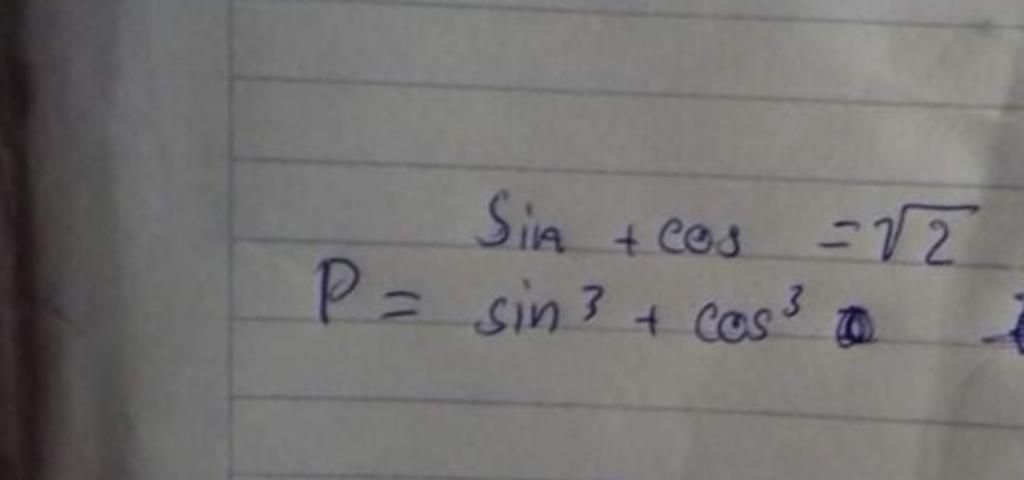 Sin + cos = √2
P = sin³ + cos³